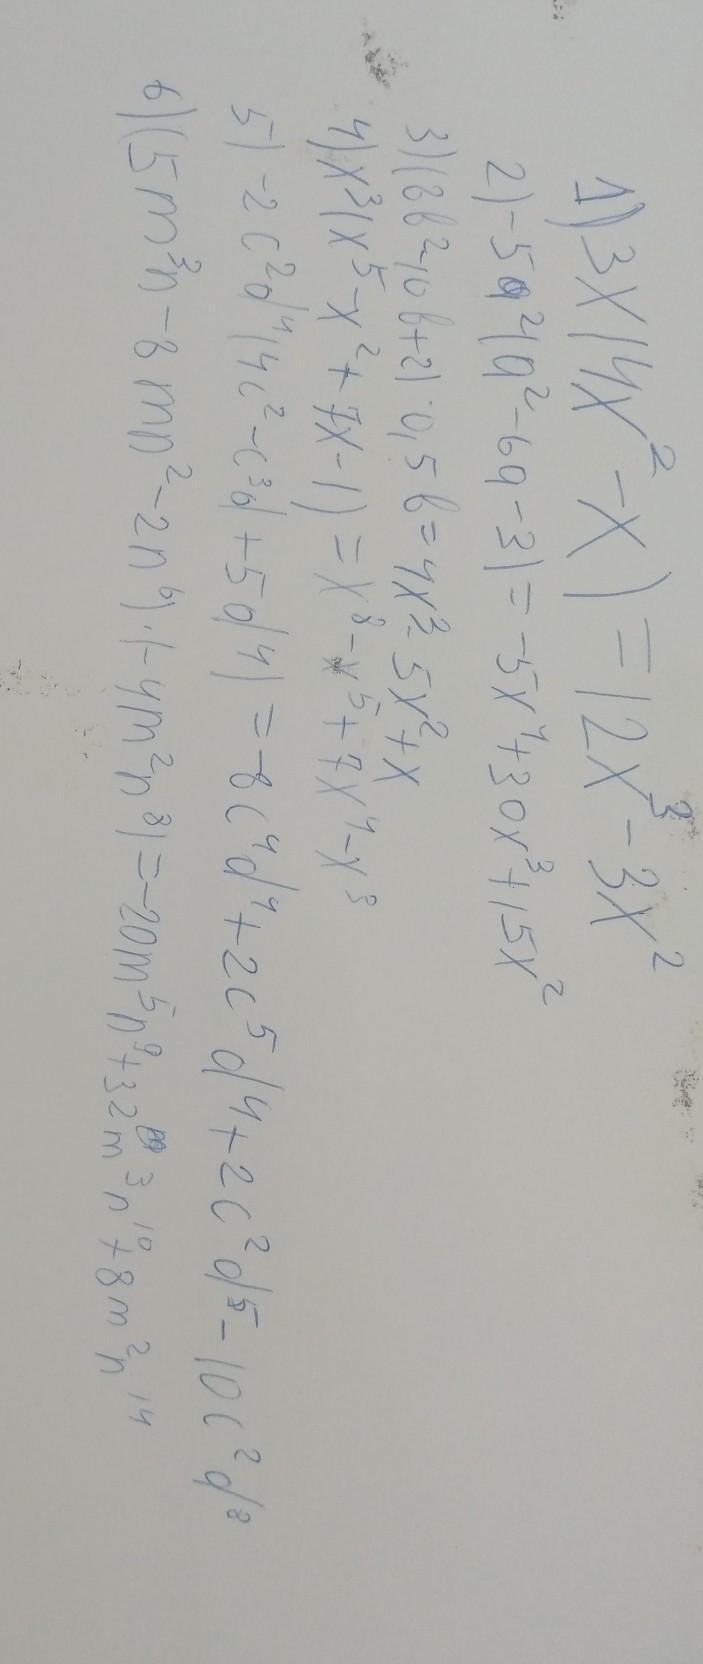 1) 3x(4x² - x) = 12x³ - 3x²
2) -5a²(a² - 6a - 3) = -5x⁴ + 30x³ + 15x²
3) (8b² - 10b + 2) · 0,5b = 4x³ - 5x² + x
4) x³(x⁵ - x² + 7x - 1) = x⁸ - x⁵ + 7x⁴ - x³
5) -2c²d⁴(4c² - c³d + 5d⁴) = -8c⁴d⁴ + 2c⁵d⁴ + 2c²d⁵ - 10c²d⁸
6) (5m³n - 8mn² - 2n⁶) · (-4m²n⁸) = -20m⁵n⁹ + 32m³n¹⁰ + 8m²n¹⁴